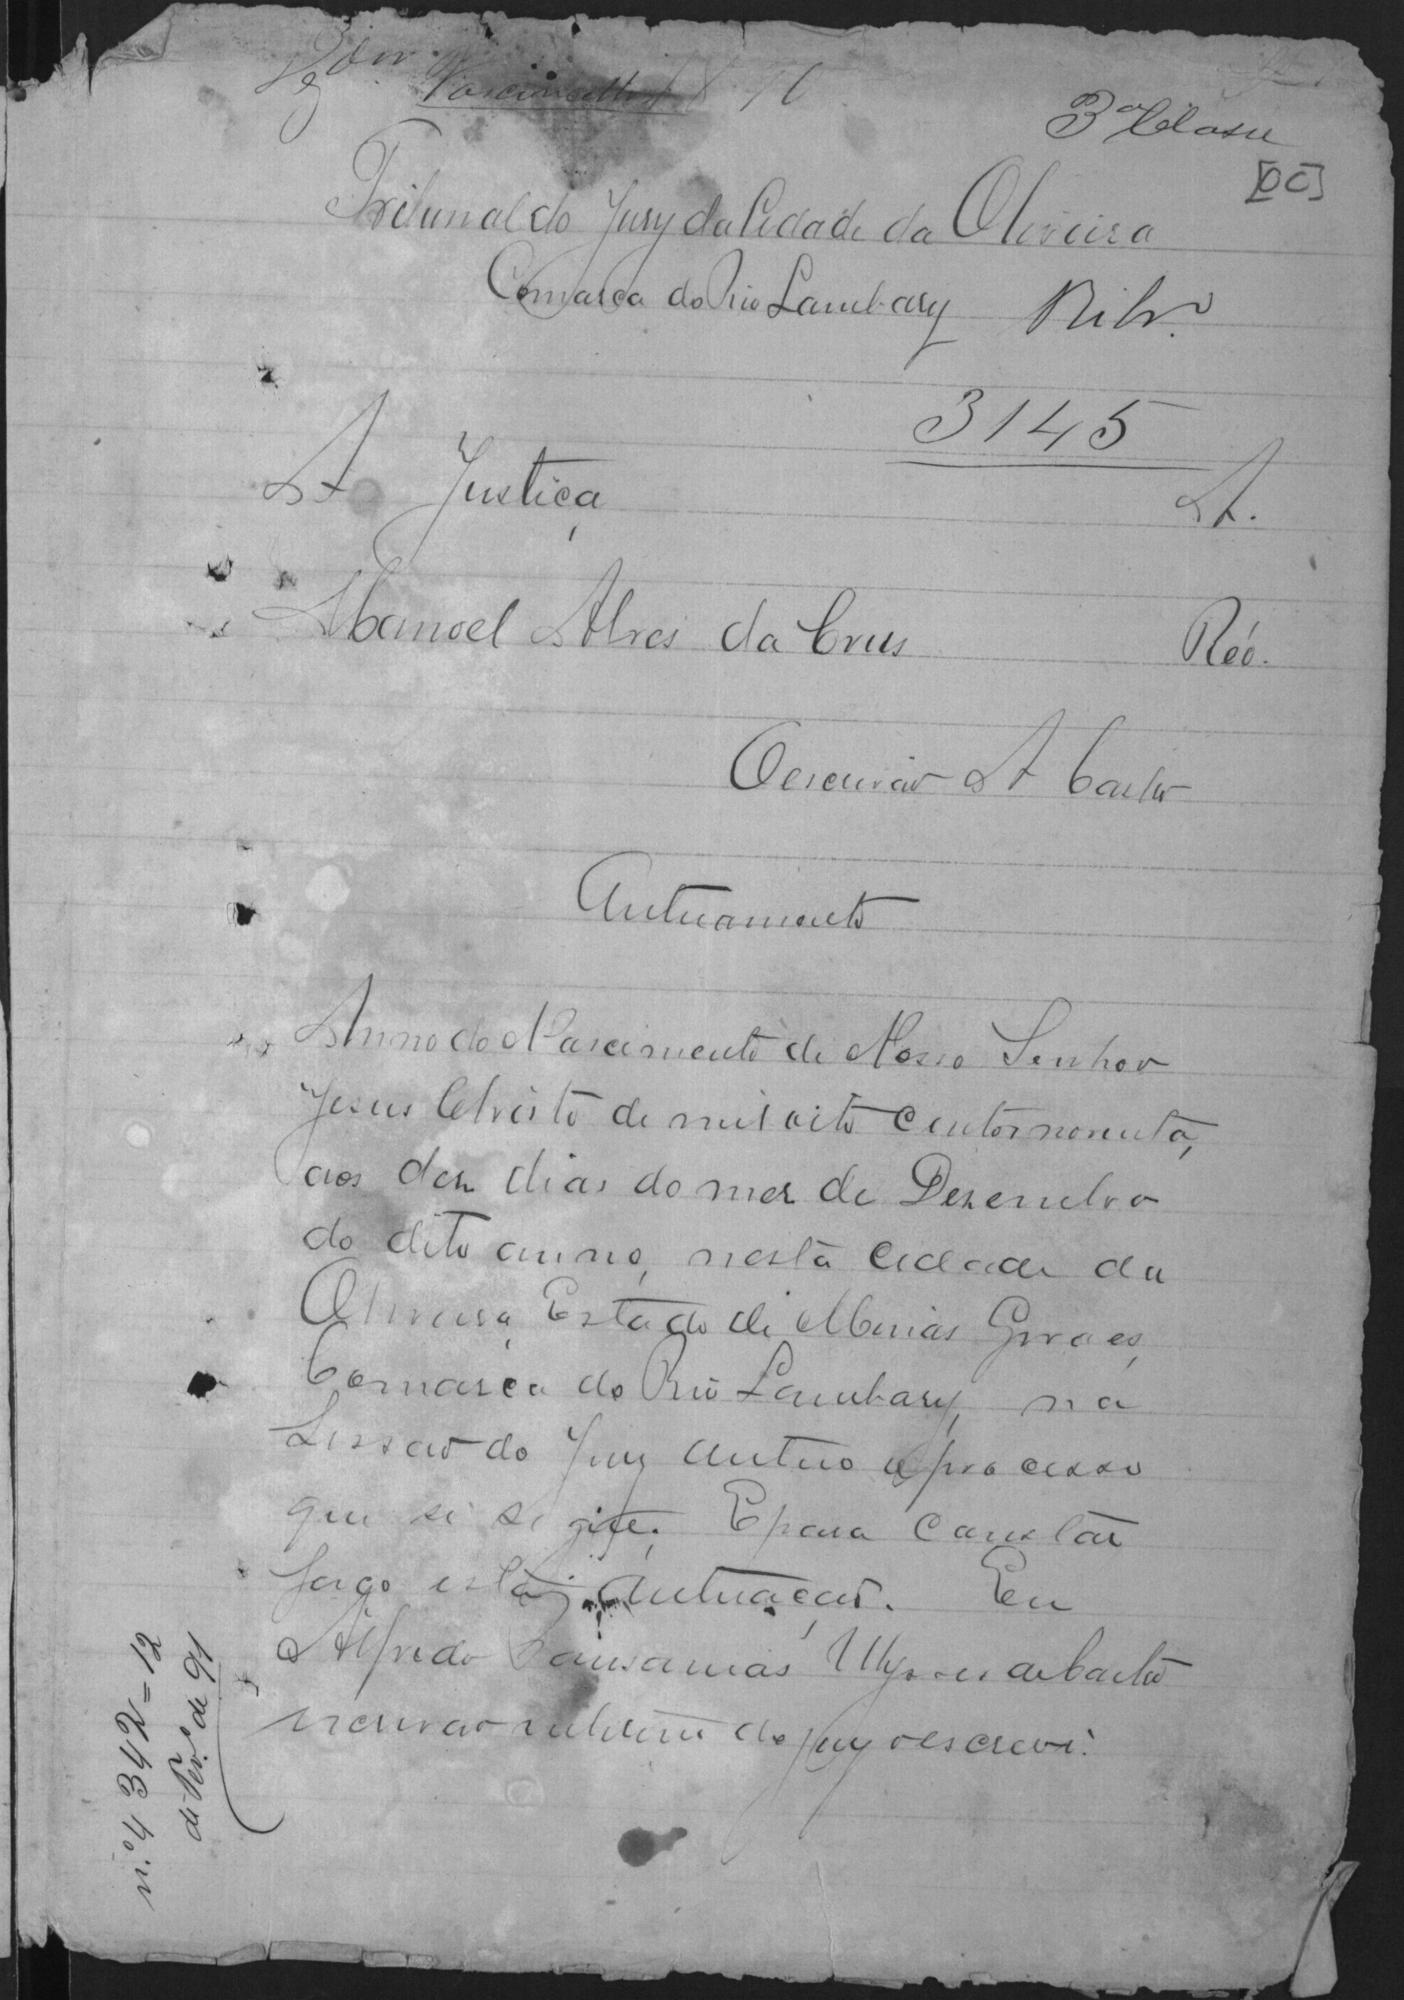 Vasconcellos
3ª Classe
[OC]
Tribunal do Jury da Cidade da Oliveira
Comarca do Rio Lambary Ribrº
3145
A Justiça A.
Manoel Alves da Crus Réo.
Oescrivão A Castro
Autuamento
Anno do Nascimento de Nosso Senhor
Jesus Christo de mil oito centos noventa,
aos dez dias do mez de Dezembro
do dito anno, nesta Cidade da
Oliveira, Estado de Minas Geraes,
Comarca do Rio Lambary, na
Sessão do Jury autuo o processo
que se segue. E para constar
faço esta autuação. Eu
Alfredo Pausanias Ulysses de Castro
escrivão do jury o escrevi.
n.º 4342 = 12
de Fevº de 91